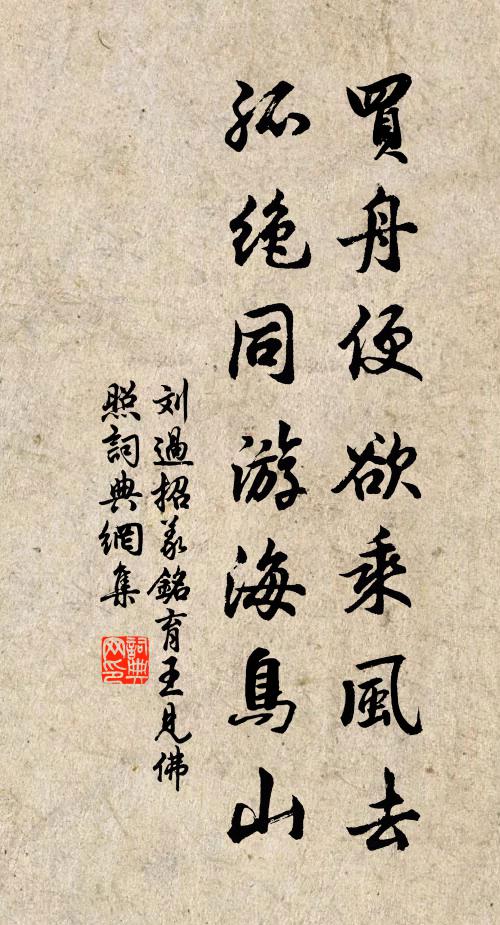 買舟便欲乘風去
孤絶同游海鳥山
刘過招義銘育王見佛
照詞典網集
詞典网印